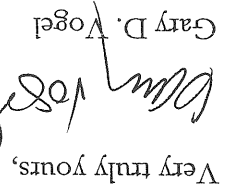 Very truly yours,
Gary D. Vogel